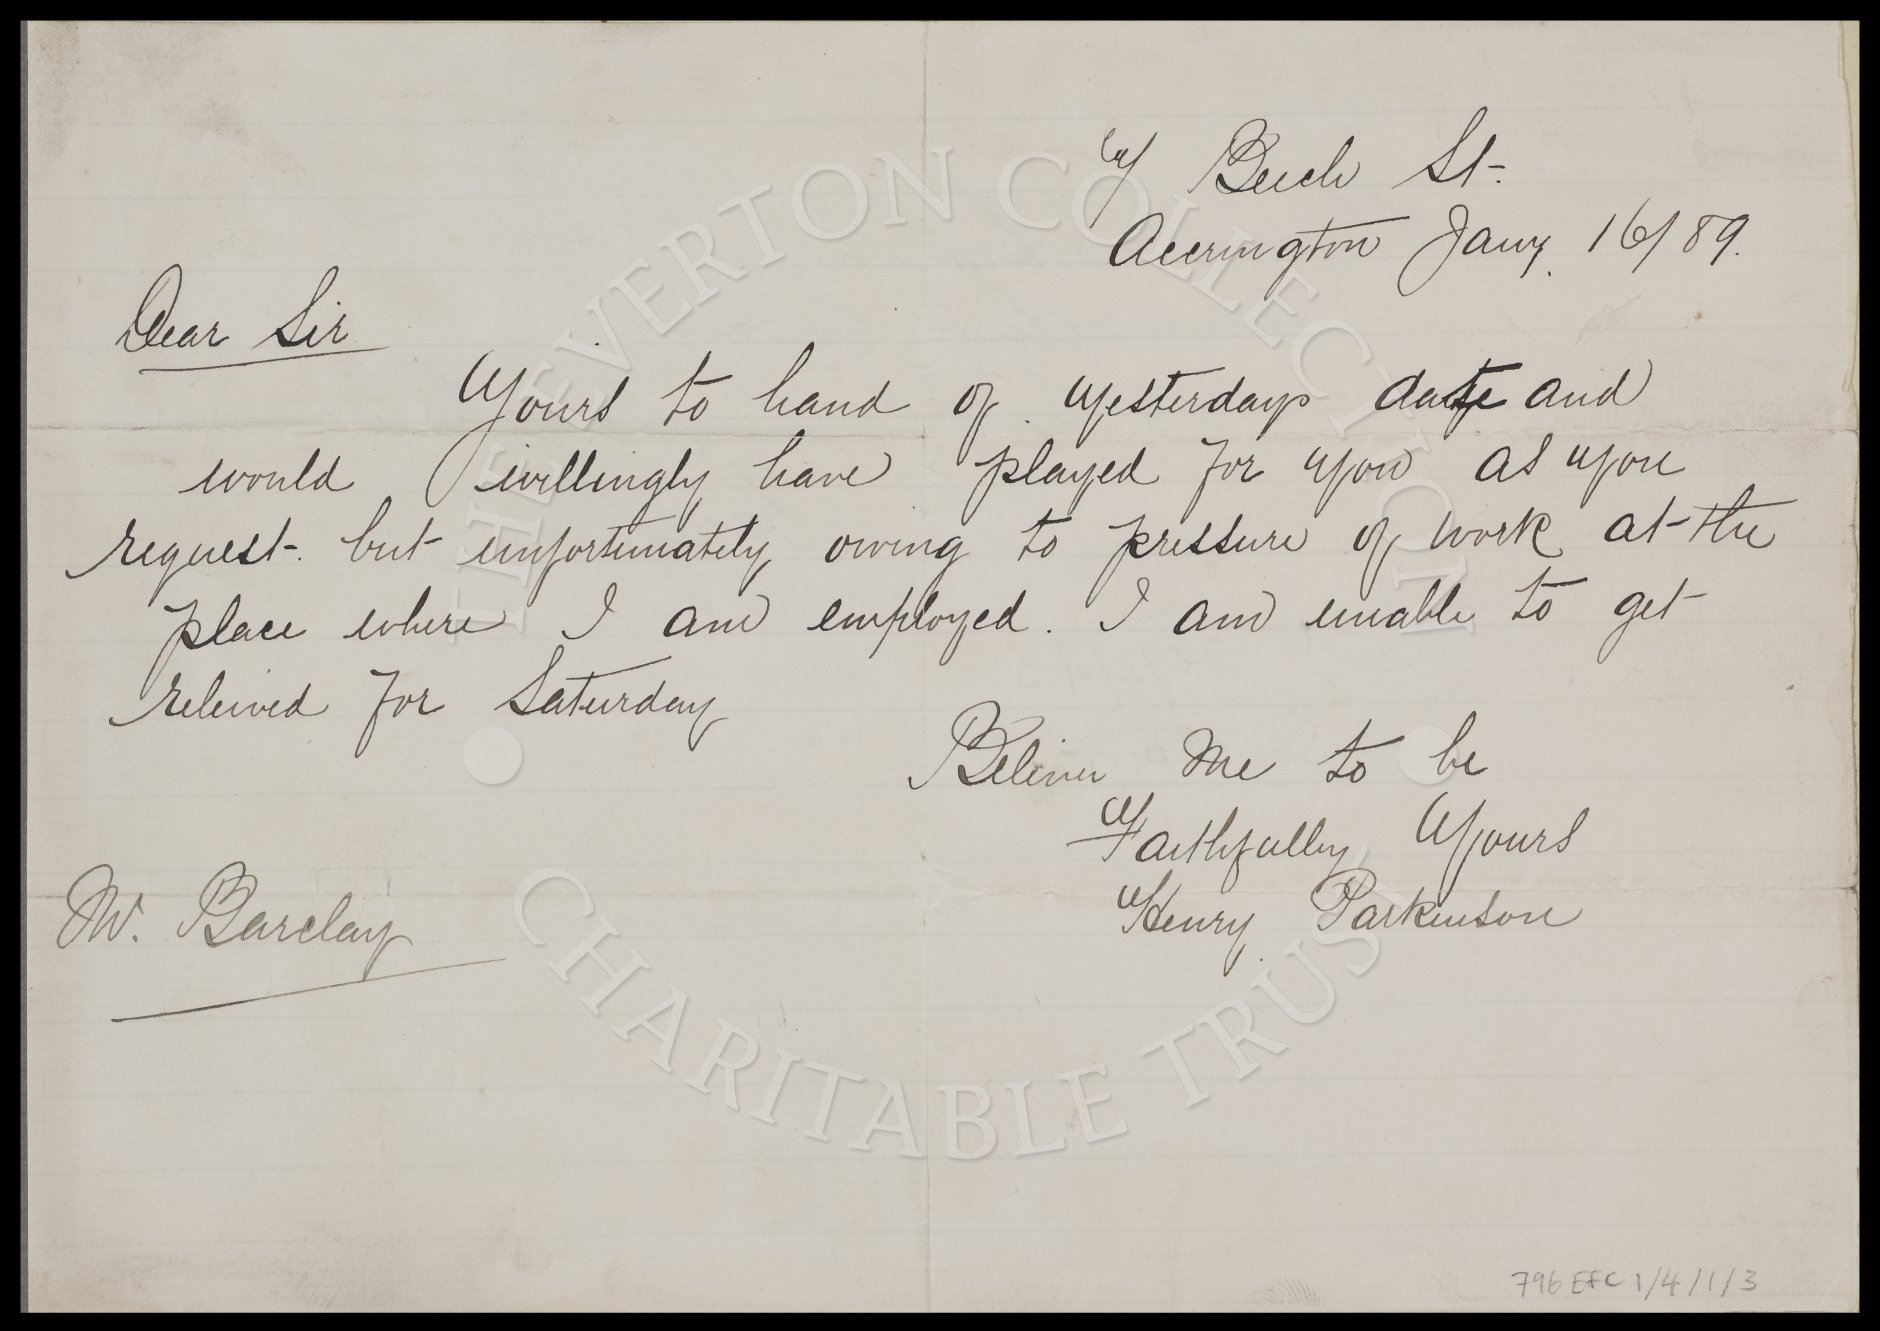 Beech St.
Accrington Jany. 16/89.
Dear Sir
Yours to hand of yesterdays date and
would willingly have played for you as you
request. but unfortunately owing to pressure of work at the
place where I am employed. I am unable to get
releived for Saturday
Beleive Me to be
Faithfully Yours
Henry Parkinson
Mr. Barclay
THE EVERTON COLLECTION
CHARITABLE TRUST
796 EFC 1/4/1/3